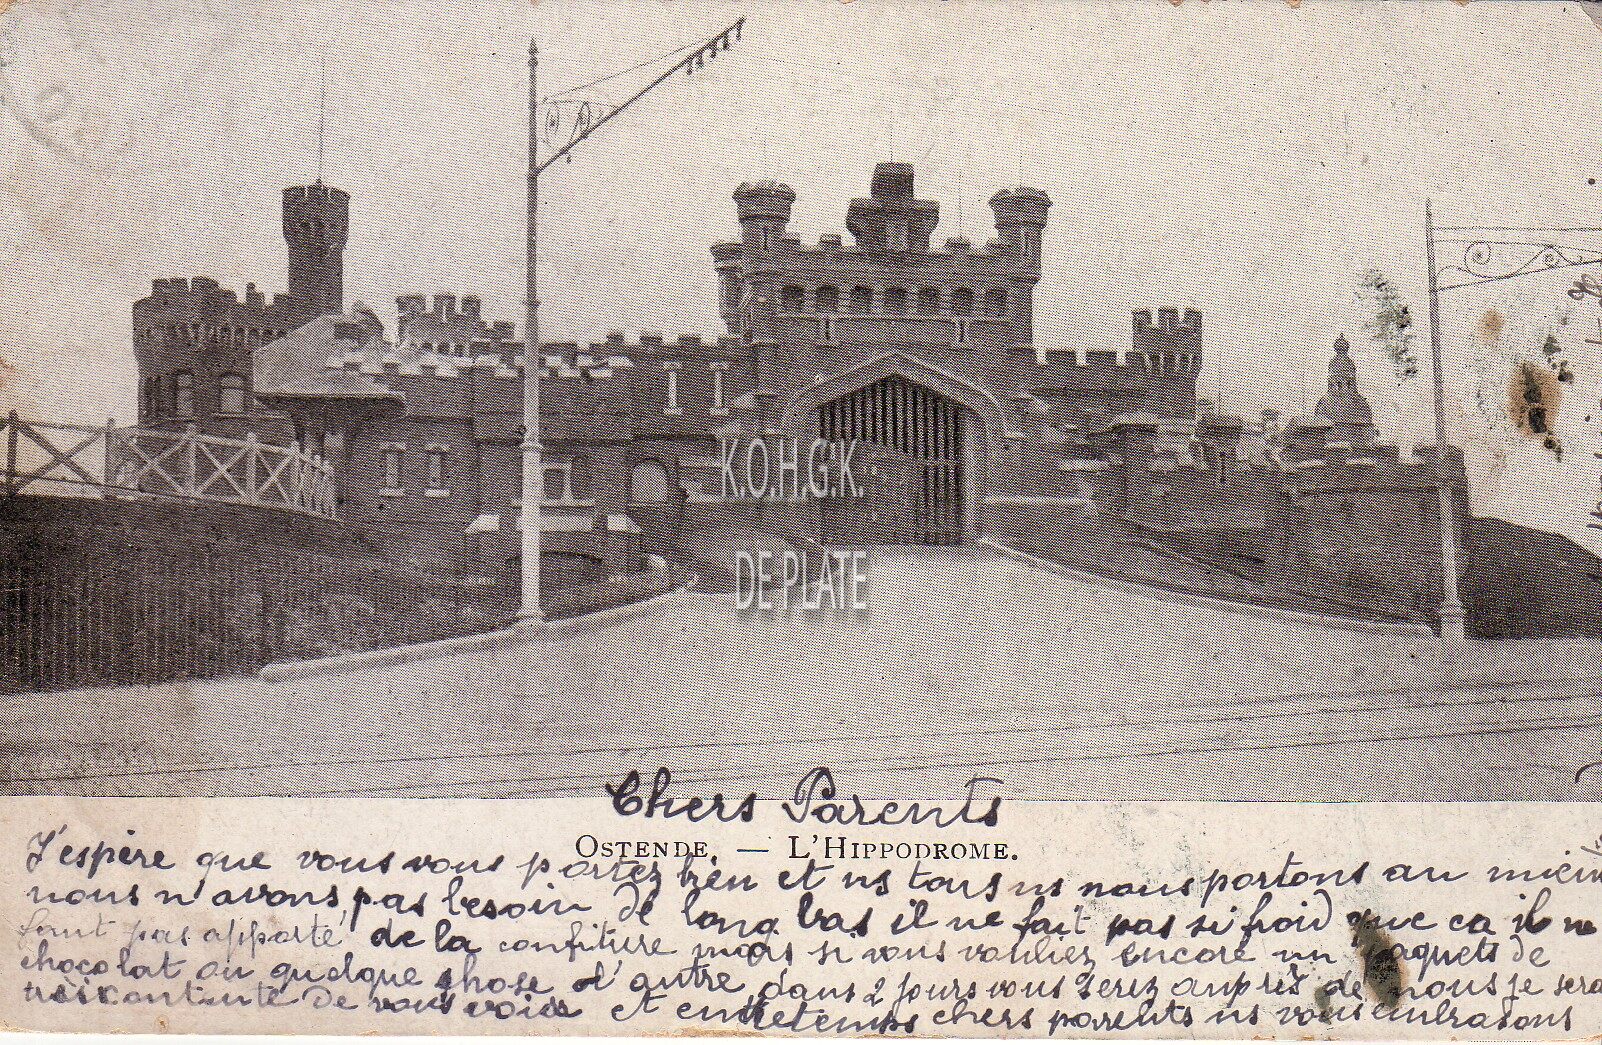 K.O.H.G.K.
DE PLATE
Chers Parents
OSTENDE. — L'HIPPODROME.
J'espère que vous vous portez bien et ns tous ns nous portons au mieux
nous n'avons pas besoin de long bas il ne fait pas si froid que ca il ne
faut pas apporté de la confiture mais si vous vouliez encore un paquets de
chocolat ou quelque chose d'autre dans 2 jours vous serez auprès de nous je serai
très contente de vous voir et entretemps chers parents ns vous embrasons